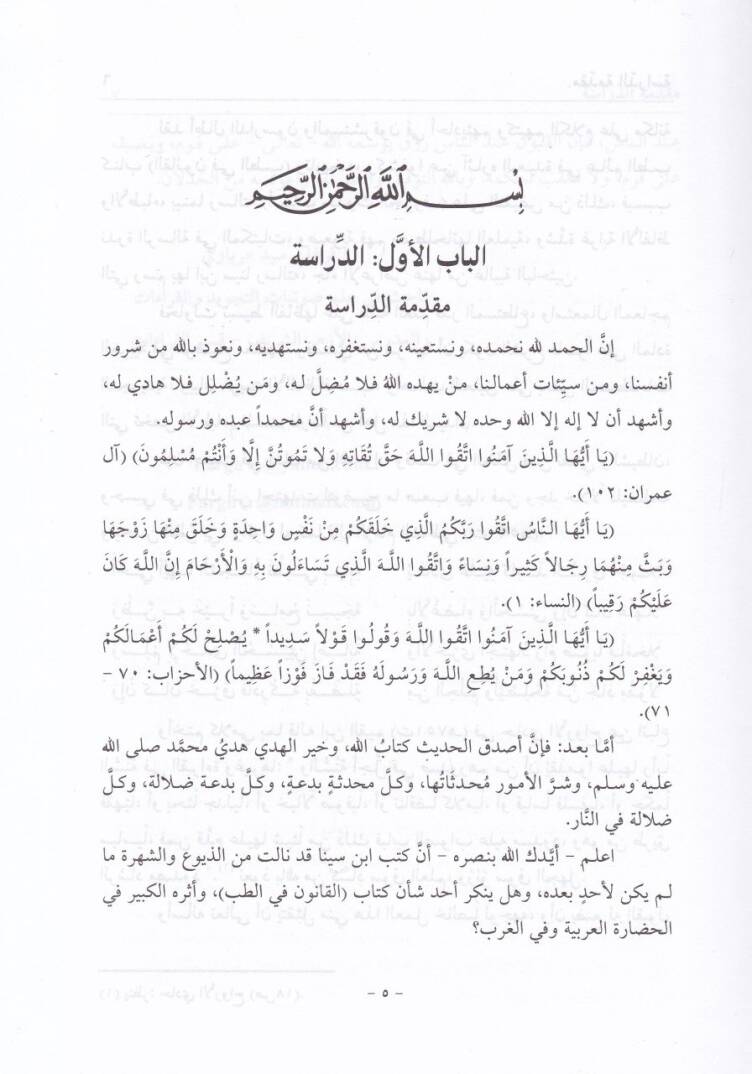 بِسْمِ اللَّهِ الرَّحْمَٰنِ الرَّحِيمِ
الباب الأوَّل: الدِّراسة
مقدِّمة الدِّراسة
إنَّ الحمد لله نحمده، ونستعينه، ونستغفره، ونستهديه، ونعوذ بالله من شرور
أنفسنا، ومن سيِّئات أعمالنا، منْ يهده اللهُ فلا مُضِلَّ له، ومَن يُضْلِل فلا هادي له،
وأشهد أن لا إله إلا الله وحده لا شريك له، وأشهد أنَّ محمداً عبده ورسوله.
(يَا أَيُّهَا الَّذِينَ آمَنُوا اتَّقُوا اللَّهَ حَقَّ تُقَاتِهِ وَلَا تَمُوتُنَّ إِلَّا وَأَنْتُمْ مُسْلِمُونَ) (آل
عمران: ١٠٢).
(يَا أَيُّهَا النَّاسُ اتَّقُوا رَبَّكُمُ الَّذِي خَلَقَكُمْ مِنْ نَفْسٍ وَاحِدَةٍ وَخَلَقَ مِنْهَا زَوْجَهَا
وَبَثَّ مِنْهُمَا رِجَالاً كَثِيراً وَنِسَاءً وَاتَّقُوا اللَّهَ الَّذِي تَسَاءَلُونَ بِهِ وَالْأَرْحَامَ إِنَّ اللَّهَ كَانَ
عَلَيْكُمْ رَقِيباً) (النساء: ١).
(يَا أَيُّهَا الَّذِينَ آمَنُوا اتَّقُوا اللَّهَ وَقُولُوا قَوْلاً سَدِيداً * يُصْلِحْ لَكُمْ أَعْمَالَكُمْ
وَيَغْفِرْ لَكُمْ ذُنُوبَكُمْ وَمَنْ يُطِعِ اللَّهَ وَرَسُولَهُ فَقَدْ فَازَ فَوْزاً عَظِيماً) (الأحزاب: ٧٠ -
٧١).
أمَّا بعد: فإنَّ أصدق الحديث كتابُ الله، وخير الهدي هديُ محمَّد صلى الله
عليه وسلم، وشرَّ الأمور مُحدثَاتُها، وكلَّ محدثةٍ بدعةٍ، وكلَّ بدعة ضلالة، وكلَّ
ضلالة في النَّار.
اعلم - أيَّدك الله بنصره - أنَّ كتب ابن سينا قد نالت من الذيوع والشهرة ما
لم يكن لأحدٍ بعده، وهل ينكر أحد شأن كتاب (القانون في الطب)، وأثره الكبير في
الحضارة العربية وفي الغرب؟
- ٥ -